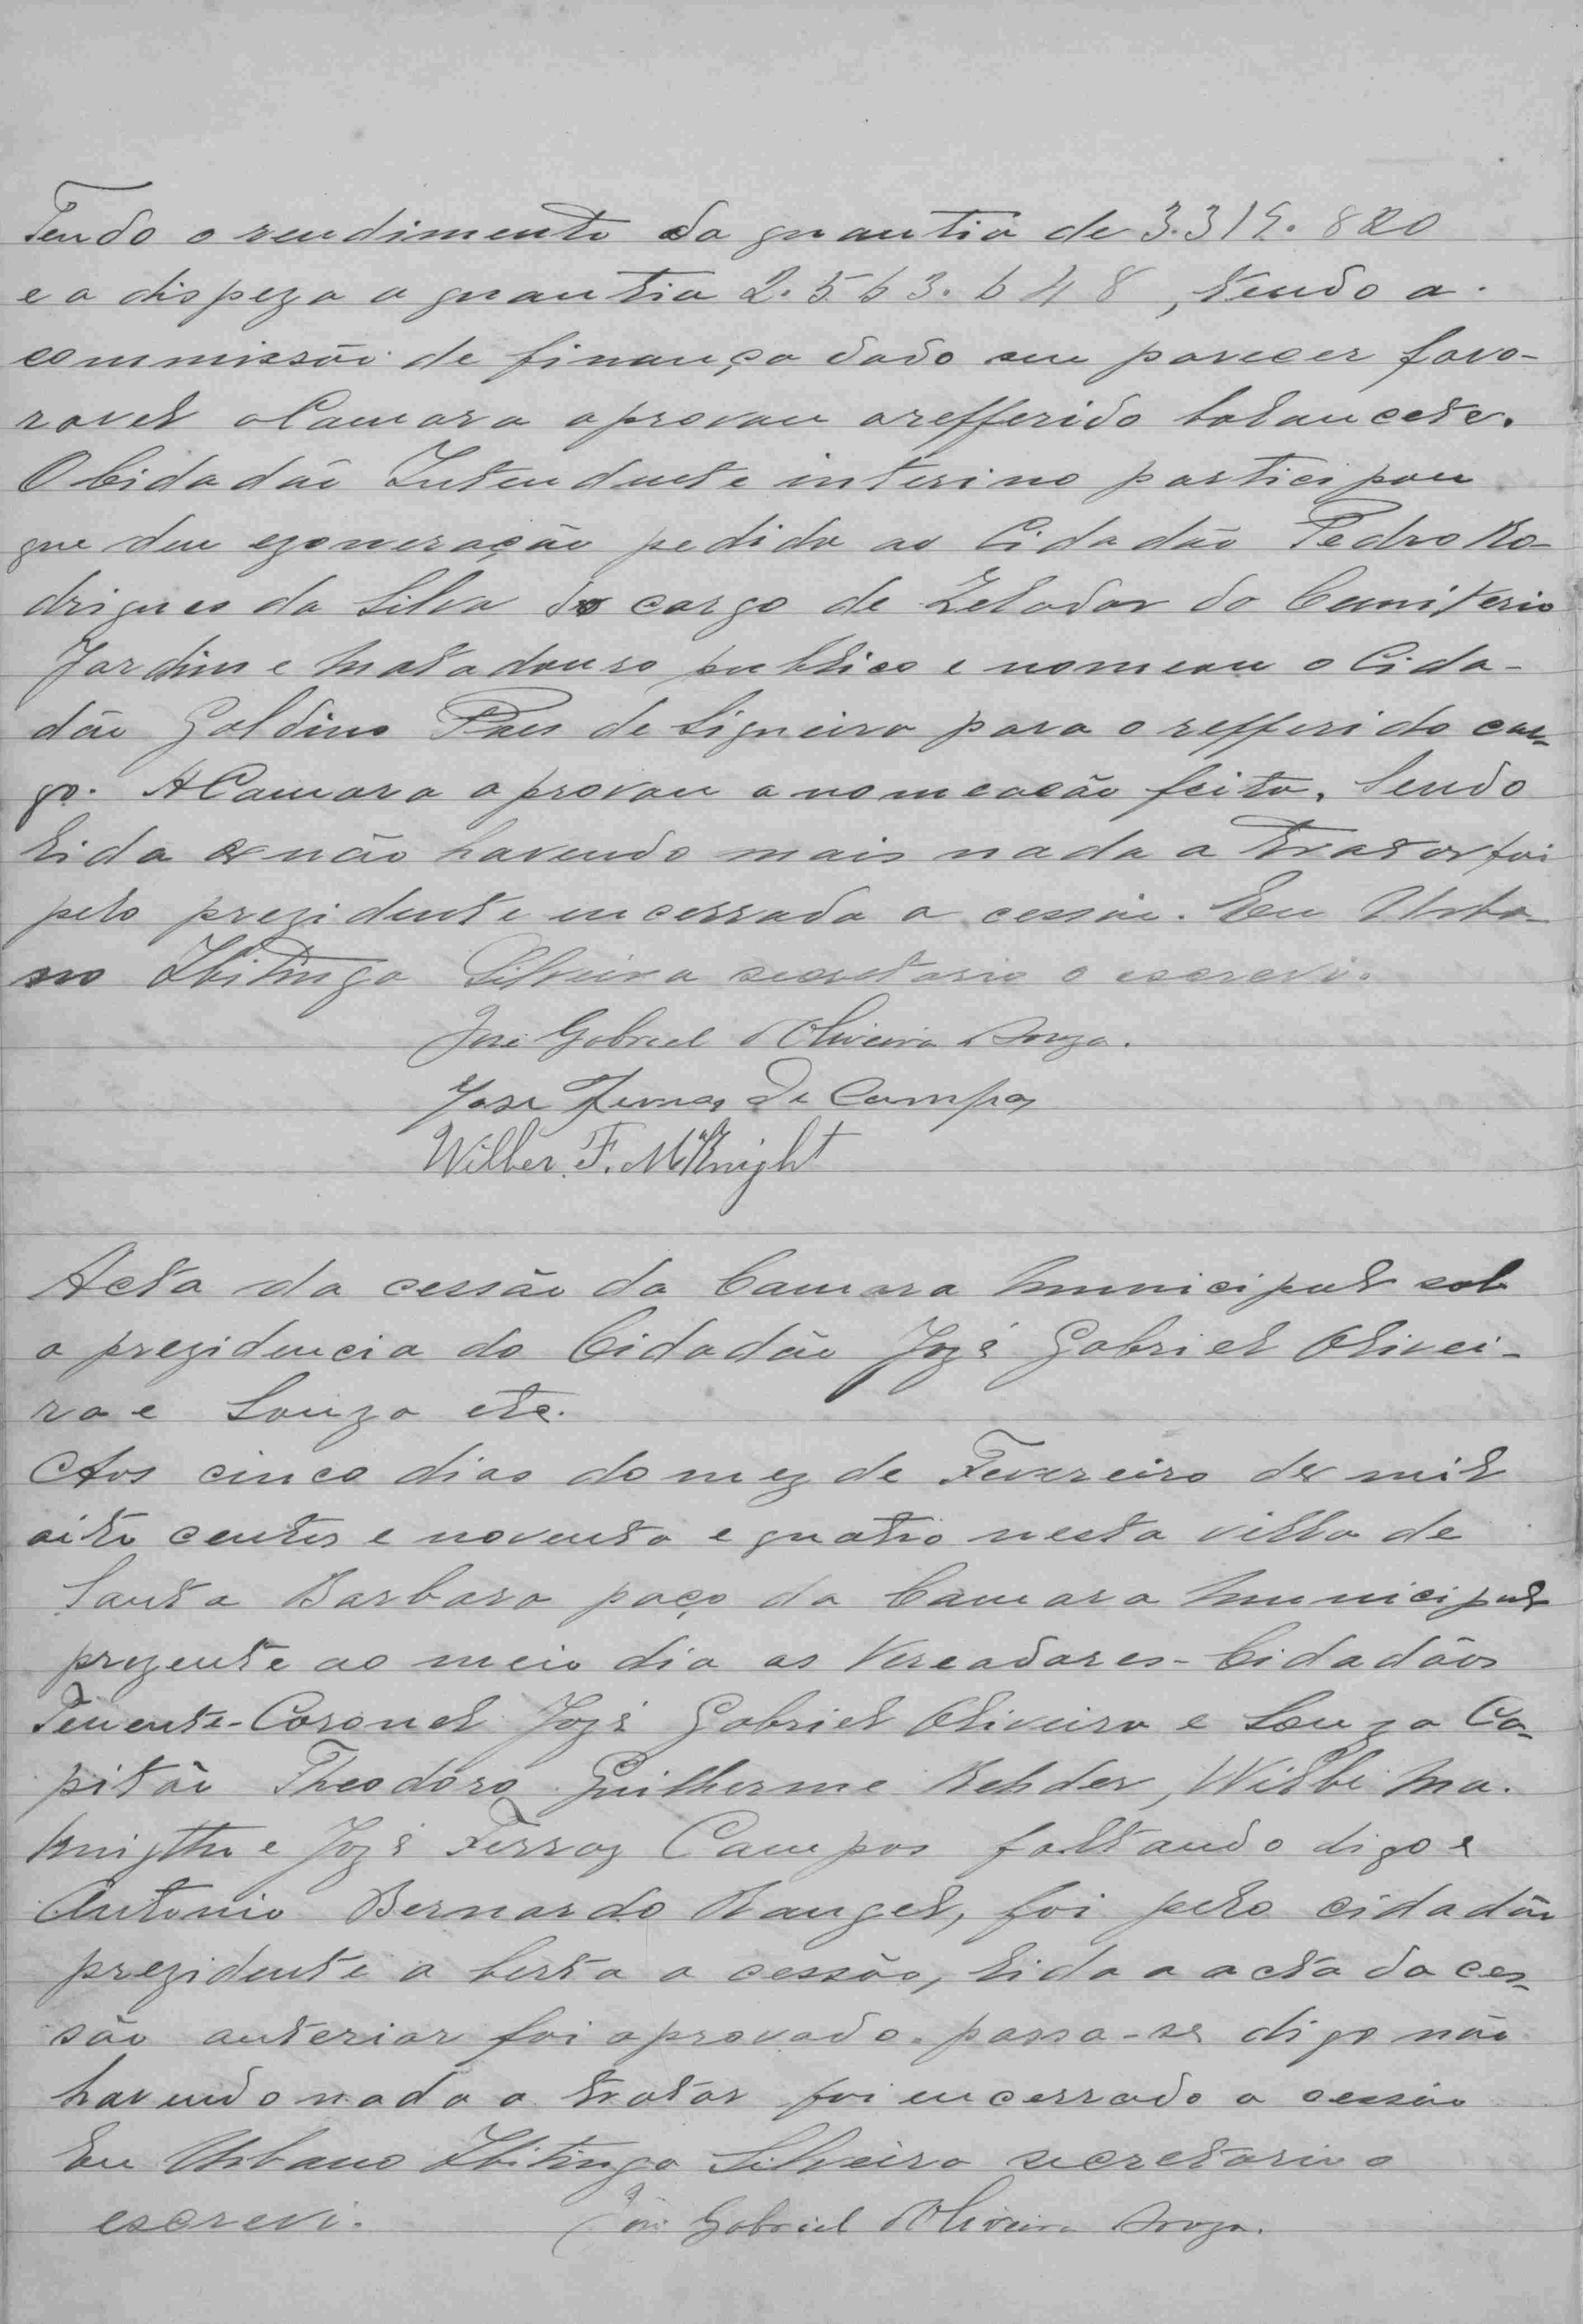 Tendo o rendimento da quantia de 3.319.820
e a dispeza a quantia 2.563.648, tendo a
commissão de finança dado seu parecer favo-
ravel a Camara aprovou o refferido balancete.
O Cidadão Intendente interino participou
que deu ezoneração pedida ao Cidadão Pedro Ro-
drigues da Silva do cargo de Zelador do Cemiterio
Jardim e Matadouro publico e nomeou o Cida-
dão Galdino Paes de Siqueira para o refferido car-
go. A Camara aprovou a nomeação feita. Sendo
lida e não havendo mais nada a tratar foi
pelo prezidente encerrada a cessão. Eu Urba-
no Ibitinga Silveira secretario o escrevi.
José Gabriel d'Oliveira Souza.
Jose Ferraz De Campos
Wilber F. McKnight
Acta da cessão da Camara Municipal sob
a prezidencia do Cidadão Jozé Gabriel Olivei-
ra e Souza etc.
Aos cinco dias do mez de Fevereiro de mil
oito centos e noventa e quatro nesta villa de
Santa Barbara paço da Camara Municipal
prezente ao meio dia os Vereadores - Cidadãos
Tenente-Coronel Jozé Gabriel Oliveira e Souza Ca-
pitão Theodoro Guilherme Rehder, Wilbi Ma.
Knigth e Jozé Ferraz Campos faltando digo e
Antonio Bernardo Rangel, foi pelo cidadão
prezidente a berta a cessão, lida a acta da ces-
são anterior foi aprovado. passa-se digo não
havendo nada a tratar foi encerrado a cessão
Eu Urbano Ibitinga Silveira secretario o
escrevi. José Gabriel d'Oliveira Souza.